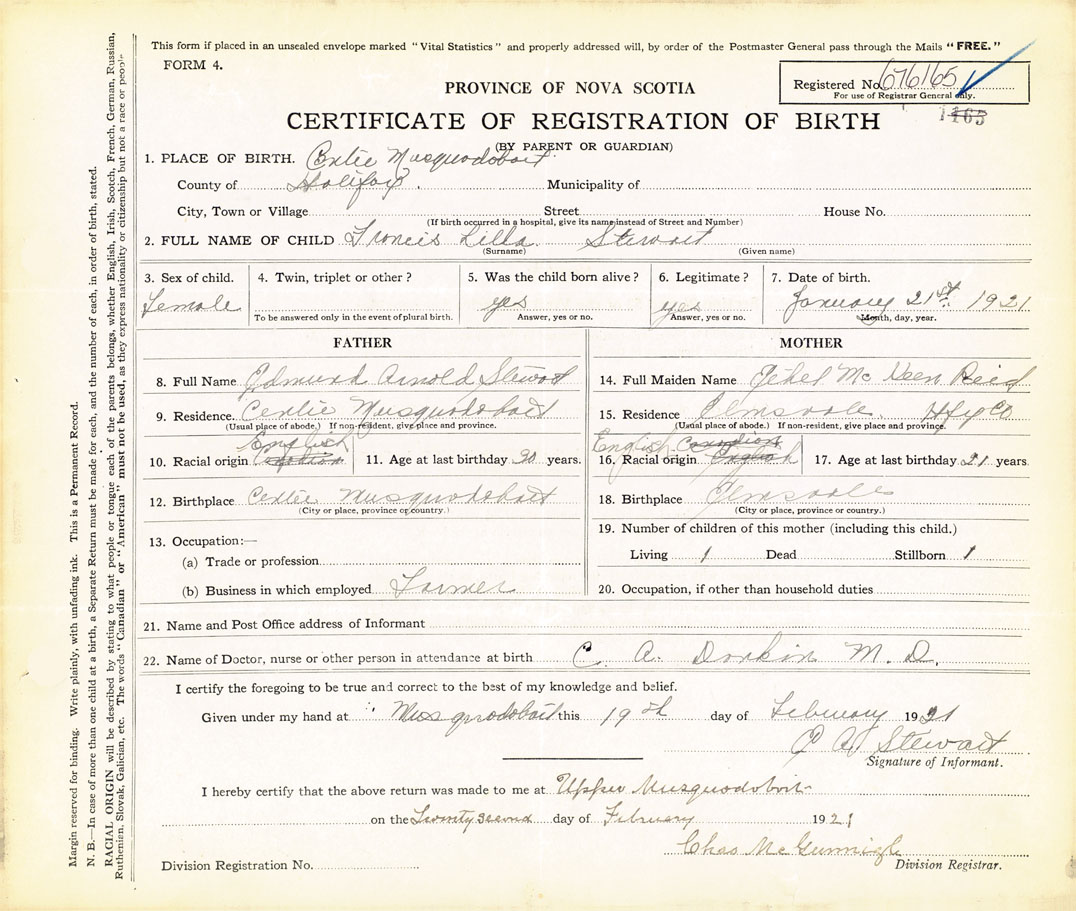 This form if placed in an unsealed envelope marked "Vital Statistics" and properly addressed will, by order of the Postmaster General pass through the Mails "FREE."
FORM 4.
Registered No. 676165
For use of Registrar General only.
PROVINCE OF NOVA SCOTIA
1165
CERTIFICATE OF REGISTRATION OF BIRTH
(BY PARENT OR GUARDIAN)
1. PLACE OF BIRTH. Centre Musquodoboit
County of Halifax. Municipality of
City, Town or Village Street House No.
(If birth occurred in a hospital, give its name instead of Street and Number)
2. FULL NAME OF CHILD Francis Lilla Stewart
(Surname) (Given name)
3. Sex of child. 4. Twin, triplet or other? 5. Was the child born alive? 6. Legitimate? 7. Date of birth.
Female yes yes January 21st 1921
To be answered only in the event of plural birth. Answer, yes or no. Answer, yes or no. Month, day, year.
FATHER
8. Full Name Edmund Arnold Stewart
9. Residence. Centre Musquodoboit
(Usual place of abode.) If non-resident, give place and province.
English
10. Racial origin Canadian 11. Age at last birthday 30 years.
12. Birthplace Centre Musquodoboit
(City or place, province or country.)
13. Occupation:—
(a) Trade or profession
(b) Business in which employed Farmer
MOTHER
14. Full Maiden Name Ethel McKeen Reid
15. Residence Elmsvale. Hfx Co
(Usual place of abode.) If non-resident, give place and province.
English Canadian
16. Racial origin English 17. Age at last birthday 21 years.
18. Birthplace Elmsvale
(City or place, province or country.)
19. Number of children of this mother (including this child.)
Living 1 Dead Stillborn 1
20. Occupation, if other than household duties
21. Name and Post Office address of Informant
22. Name of Doctor, nurse or other person in attendance at birth C. A. Donkin M. D.
I certify the foregoing to be true and correct to the best of my knowledge and belief.
Given under my hand at Musquodoboit this 19th day of February 1921
Stewart
Signature of Informant.
I hereby certify that the above return was made to me at Upper Musquodoboit
on the Twenty second day of February 1921
Chas McGunnigle
Division Registration No. Division Registrar.
Margin reserved for binding. Write plainly, with unfading ink. This is a Permanent Record.
N. B.—In case of more than one child at a birth, a Separate Return must be made for each, and the number of each, in order of birth, stated.
RACIAL ORIGIN will be described by stating to what people or tongue each of the parents belongs, whether English, Irish, Scotch, French, German, Russian,
Ruthenian, Slovak, Galician, etc. The words "Canadian" or "American" must not be used, as they express nationality or citizenship but not a race or people